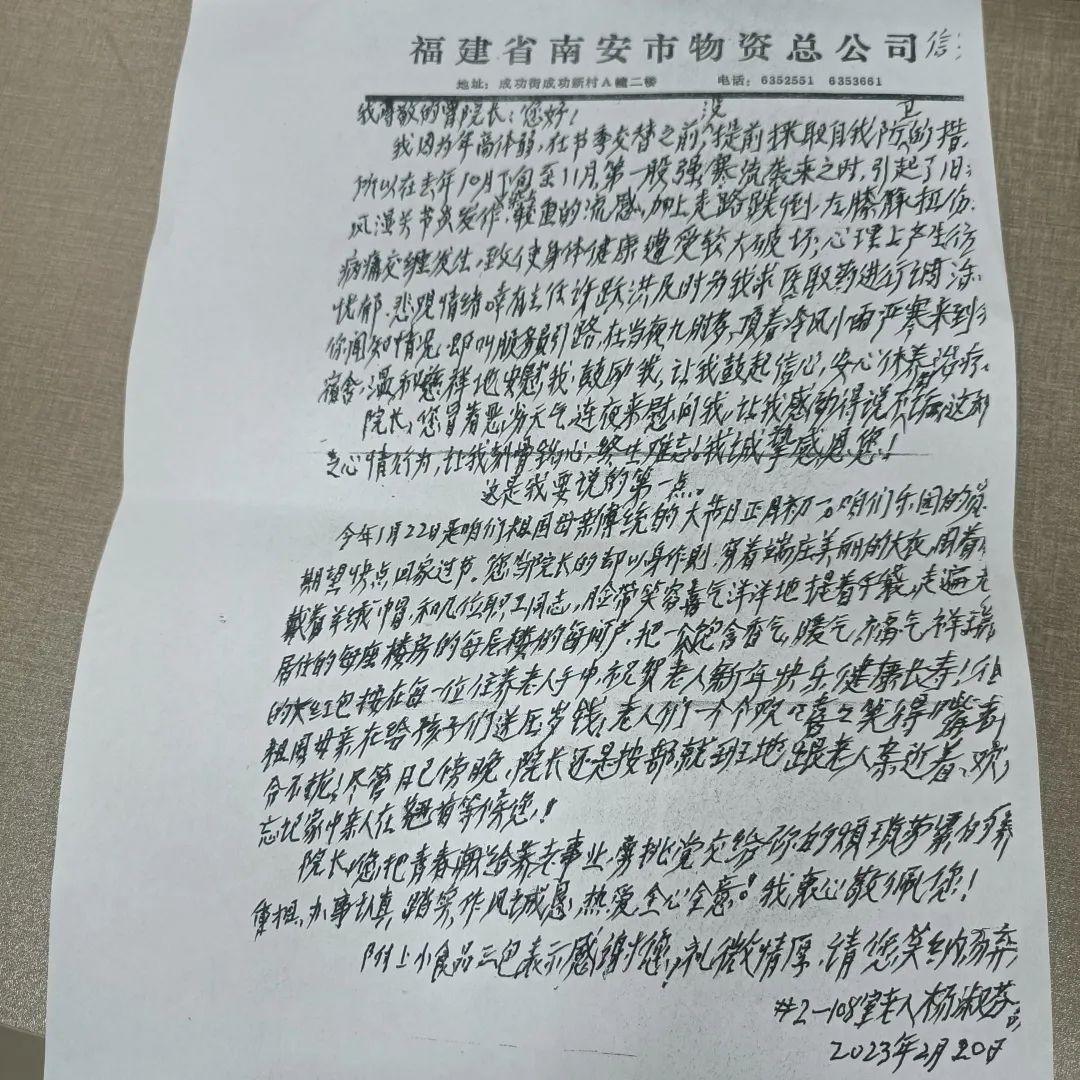 福建省南安市物资总公司信
地址：成功街成功新村A幢二楼 电话：6352551 6353661
我尊敬的曾院长：您好！
我因为年高体弱，在节季交替之前，没提前采取自我防卫的措
所以在去年10月下旬至11月，第一股强寒流袭来之时，引起了旧
风湿关节炎发作，较重的流感，加上走路跌倒，左膝腿扭伤
病痛交缠发生，致使身体健康遭受较大破坏；心理上产生
忧郁、悲观情绪。幸有主任许跃洪及时为我求医取药进行调治
你闻知情况，即叫服务员引路，在当夜九时多，顶着冷风小雨严寒来到
宿舍，温和慈祥地安慰我，鼓励我，让我鼓起信心，安心休养治疗
院长，您冒着恶劣天气，连夜来慰问我，让我感动得说不 这
之心情行为，让我刻骨铭心，终生难忘！我诚挚感恩您！
这是我要说的第一点。
今年1月22日是咱们祖国母亲传统的大节日正月初一，咱们乐园的
期望快点回家过节。您当院长的却以身作则，穿着端庄美丽的大衣，围着
戴着羊绒巾冒，和几位职工同志，脸带笑容喜气洋洋地提着手袋，走遍
居住的每座楼房的每层楼的每间户，把一 饱含香气，暖气，福气，祥瑞
的大红包按在每一位住养老人手中，祝贺老人新年快乐健康长寿！
祖国母亲在给孩子们送压岁钱，老人们一个个欢喜之笑得嘴都
合不拢！尽管日已傍晚，院长还是按部就到班地跟老人亲近着、欢
忘记家中亲人在翘首等候您！
院长，您把青春献给养老事业，勇挑党交给你的烦琐劳累的养
重担，办事认真，踏实，作风诚恳，热爱，全心全意！我衷心敬佩您！
附上小食品三包表示感谢您，礼微情厚，请您笑纳勿弃
#2—108室老人杨淑芬
2023年2月20日